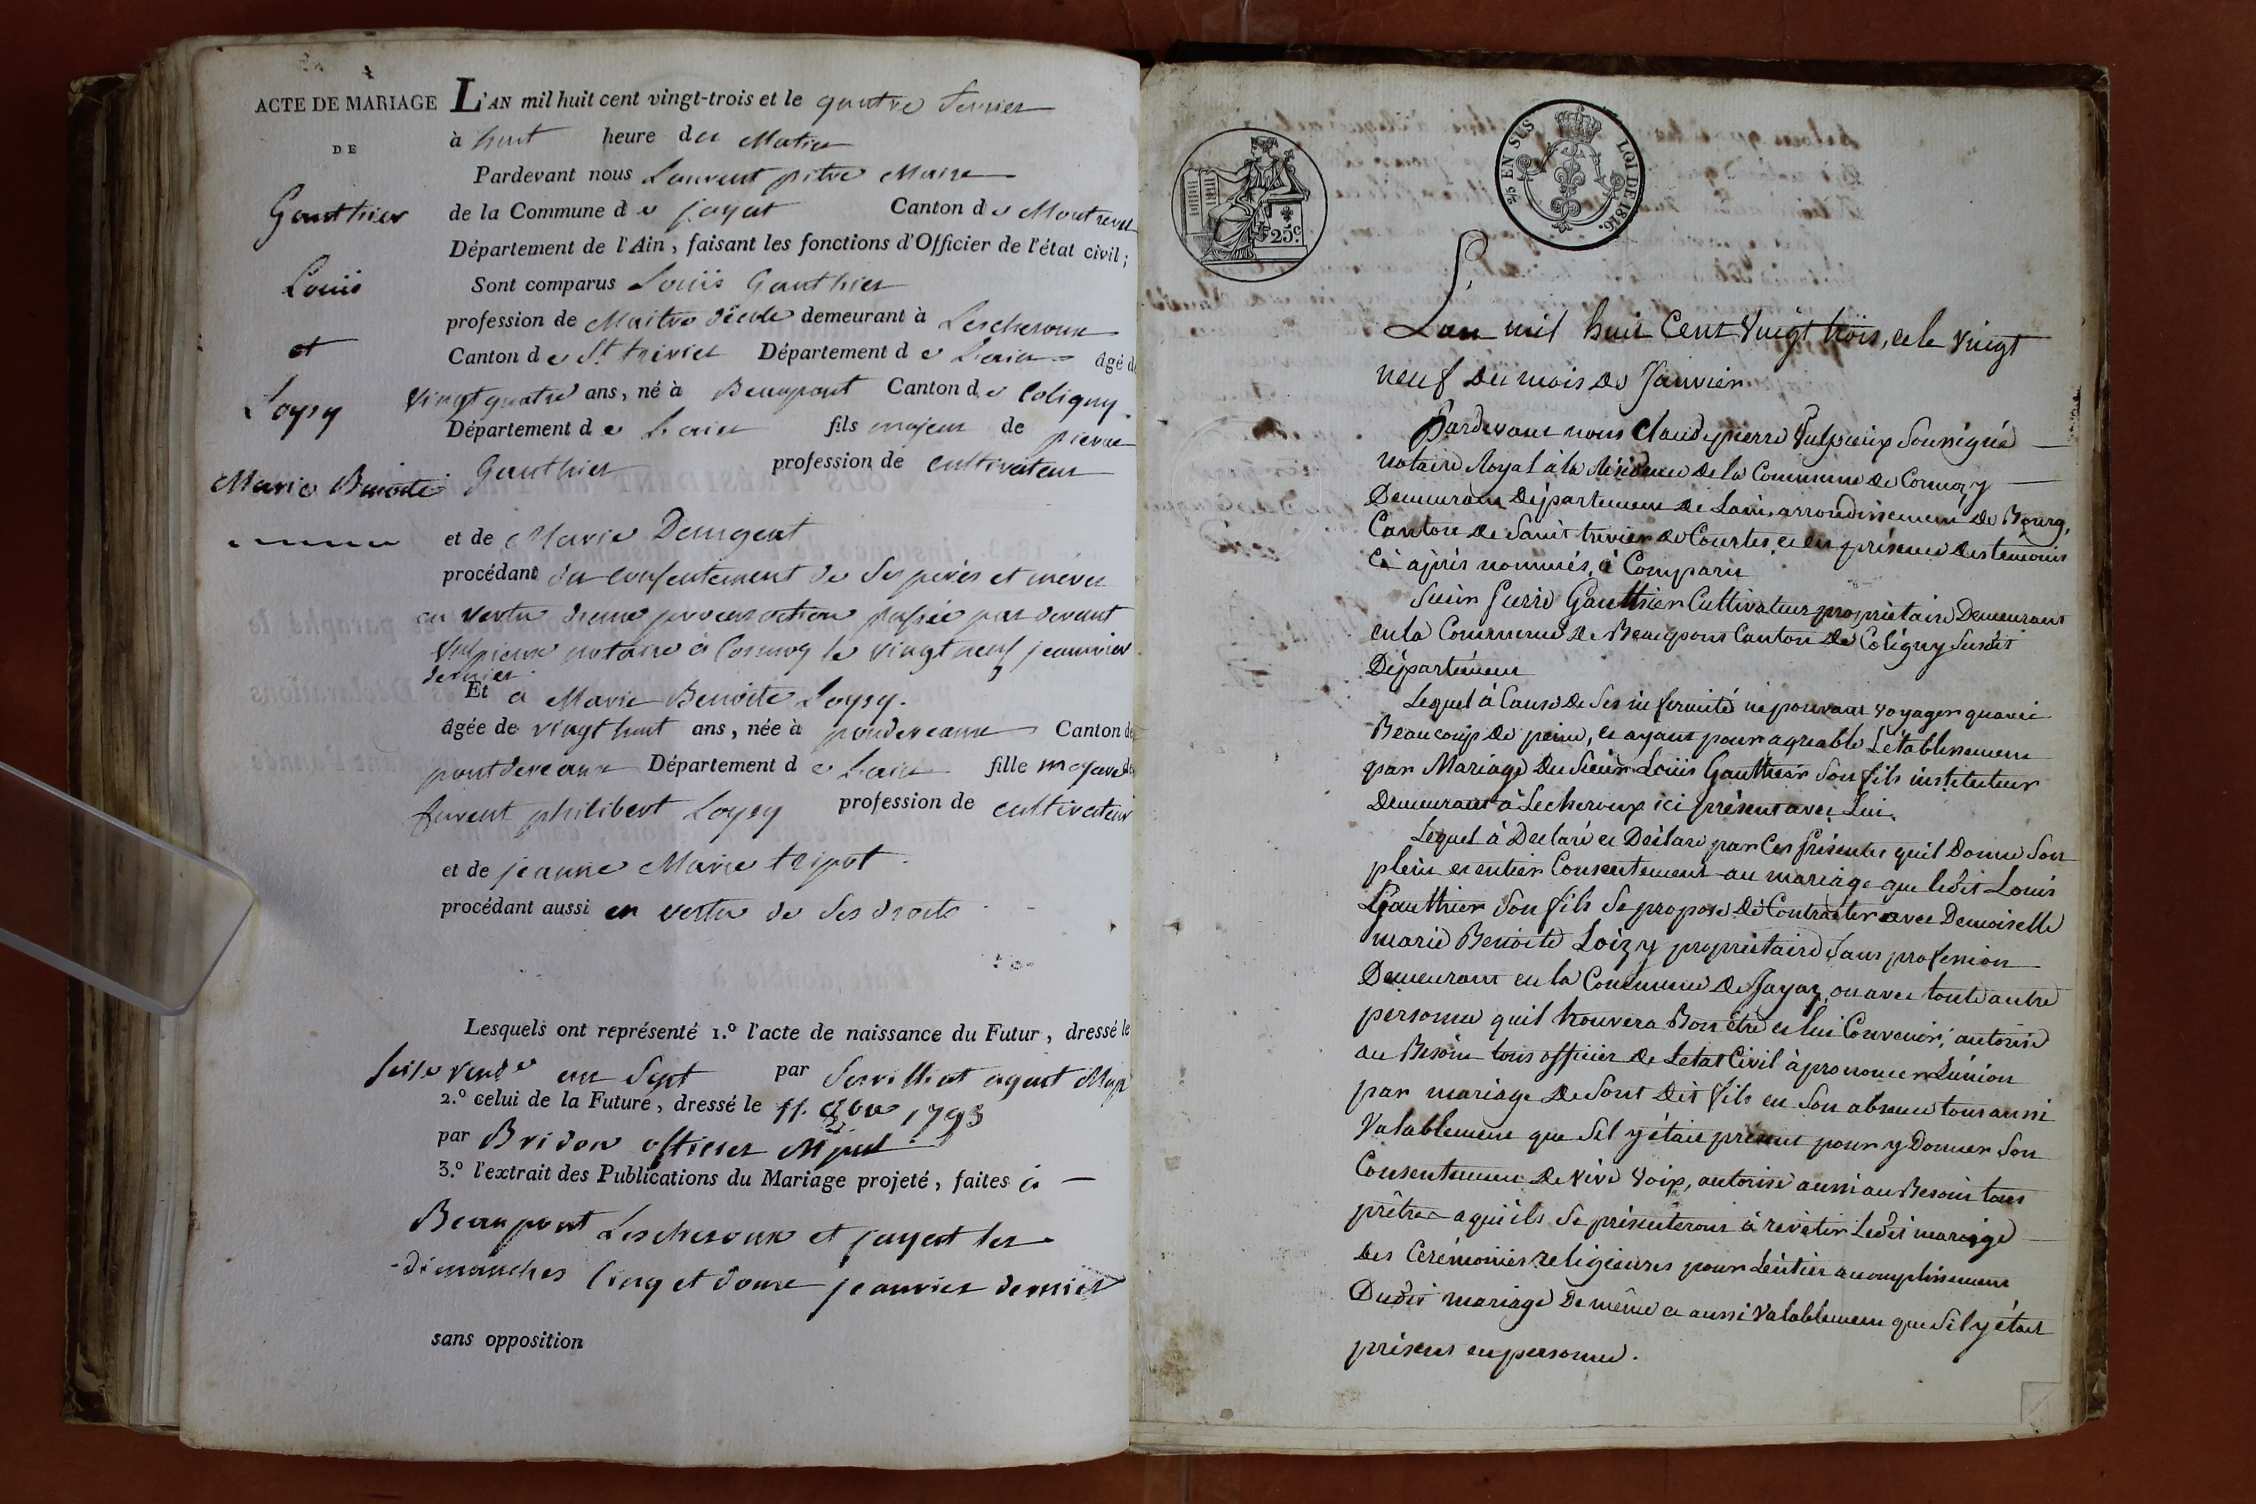 ACTE DE MARIAGE
DE
Gauthier
Louis
et
Loysy
Marie Benoite
L'AN mil huit cent vingt-trois et le quatre fevrier
à huit heure du Matin
Pardevant nous Laurent pitre Maire
de la Commune de jayat Canton de Montrevel
Département de l'Ain, faisant les fonctions d'Officier de l'état civil;
Sont comparus Louis Gauthier
profession de Maitre d'école demeurant à Lescheroux
Canton de St. trivier Département de L'ain âgé de
vingt quatre ans, né à Beaupont Canton de Coligny
Département de L'ain fils majeur de pierre
Gauthier profession de cultivateur
et de Marie Demgeat
procédant du consentement de Ses pères et mères
en vertu d'une procuration passée par devant
Vulpieux notaire à Cormoz le vingt neuf jeanvier
dernier.
Et à Marie Benoite Loysy.
âgée de vingt huit ans, née à pondevaux Canton de
pontdevaux Département de L'ain fille majeure de
furent philibert Loysy profession de cultivateur
et de jeanne Marie tripot.
procédant aussi en vertu de Ses droits
Lesquels ont représenté 1.º l'acte de naissance du Futur, dressé le
seise vendre an Sept par agent
2.º celui de la Future, dressé le 11. 8bre 1793
par Bridon officier
3.º l'extrait des Publications du Mariage projeté, faites à
Beaupont Lescheroux et jayat les
dimanches Cinq et douze jeanvier dernier
sans opposition
25 EN SUS LOI DE 1816.
25c
L'an mil huit Cent vingt trois, et le vingt
neuf du mois de Janvier
Pardevant nous Claude pierre Vulpieux Soussigné
notaire Royal à la Résidence de la Commune de Cormozy
Demeurant Département de Lain, arrondissement de Bourg,
Canton de Saint trivier de Courtes, et en présence des temoins
Ci après nommés, à Comparu
Sieur Pierre Gauthier Cultivateur propriétaire Demeurant
en la Commune de Beaupont Canton de Coligny Susdit
Département
Lequel à Cause de Ses infirmité ne pouvant voyager quavec
Beaucoup de peine, et ayant pour agréable L'établissement
par Mariage du Sieur Louis Gauthier Son fils instituteur
Demeurant à Lecheroux ici présent avec Lui.
Lequel à Déclaré et Déclare par Ces présentes quil Donne Son
plein et entier Consentement au mariage que ledit Louis
Gauthier Son fils Se propose de Contracter avec Demoiselle
marie Benoite Loizy propriétaire Sans profession
Demeurant en la Commune de Jayaz, ou avec toute autre
personne quil trouvera Bon être et lui Convenir, autorise
au Besoin tous officier de Letat Civil à prononcer Lúnion
par mariage de Sont Dit fils en Son absence tout aussi
Valablement que Sil y était présent pour y Donner Son
Consentement de vive voix, autorise aussi au Besoin tous
prêtres a qui ils Se présenteront à revêtir Ledit mariage
des Cérémonies religieuses pour Léntier acomplissement
Dudit mariage de même et aussi Valablement que Sil y était
présent en personne.